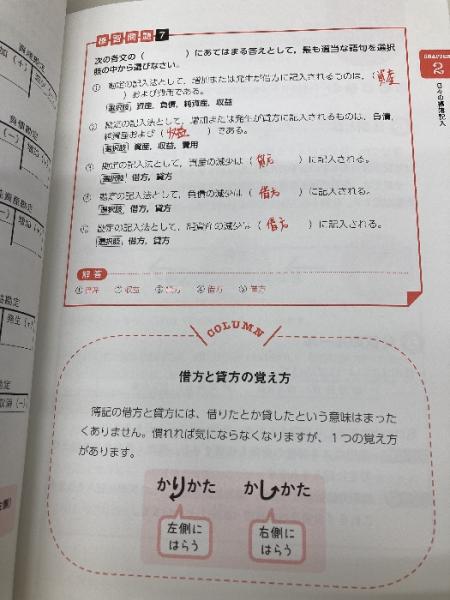 練習問題 7
次の各文の（　　　）にあてはまる答えとして，最も適当な語句を選択
肢の中から選びなさい。
① 勘定の記入法として，増加または発生が借方に記入されるものは，（ 資産
）および費用である。
選択肢 資産，負債，純資産，収益
② 勘定の記入法として，増加または発生が貸方に記入されるものは，負債，
純資産および（ 収益 ）である。
選択肢 資産，収益，費用
③ 勘定の記入法として，資産の減少は（ 貸方 ）に記入される。
選択肢 借方，貸方
④ 勘定の記入法として，負債の減少は（ 借方 ）に記入される。
選択肢 借方，貸方
⑤ 勘定の記入法として，純資産の減少は（ 借方 ）に記入される。
選択肢 借方，貸方
解答
①資産 ②収益 ③貸方 ④借方 ⑤借方
COLUMN
借方と貸方の覚え方
簿記の借方と貸方には、借りたとか貸したという意味はまった
くありません。慣れれば気にならなくなりますが、１つの覚え方
があります。
かりかた かしかた
左側に
はらう
右側に
はらう
CHAPTER
2
日々の帳簿記入
負債勘定
増加（＋）
発生（＋）
取消（－）